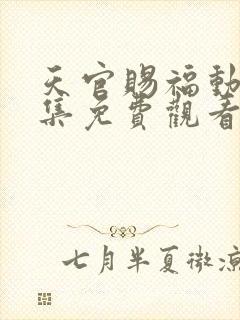 天官賜福動
集免費觀看
七月半夏微涼